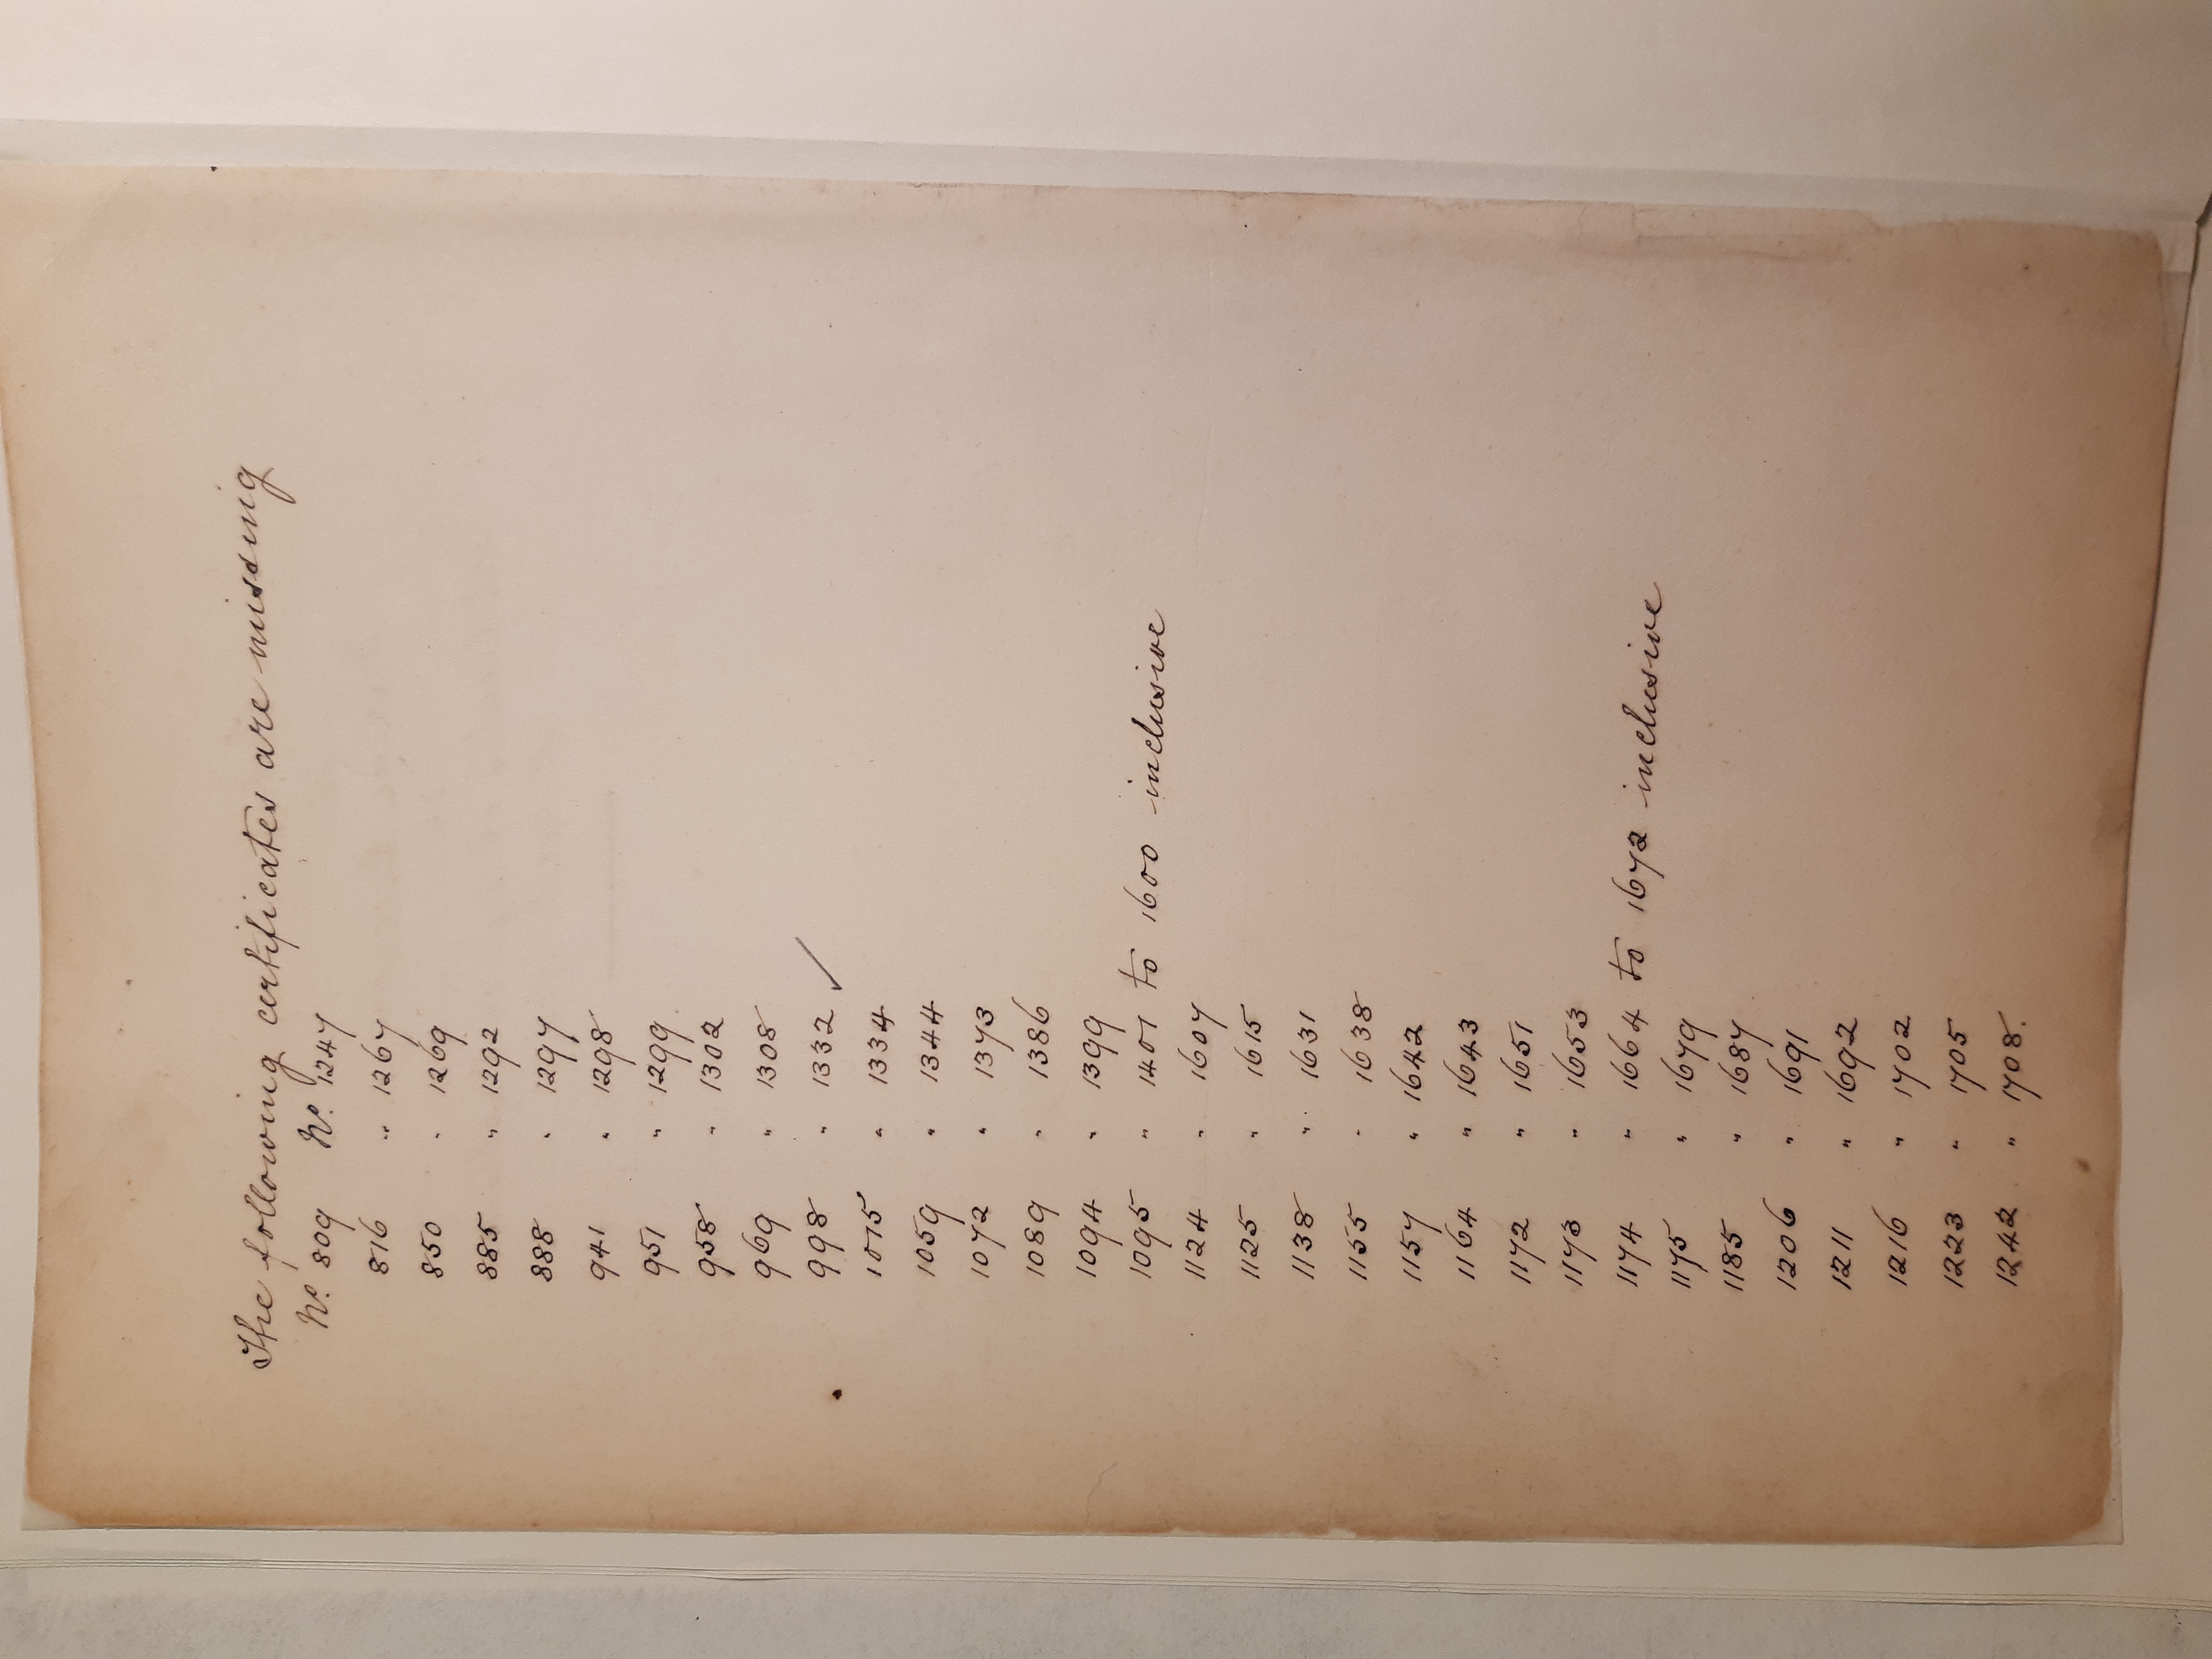 The following certificates are missing
No. 809 No. 1247
816 " 1267
850 " 1269
885 " 1292
888 " 1297
941 " 1298
951 " 1299
958 " 1302
969 " 1308
998 " 1332 ✓
1015 " 1334
1059 " 1344
1072 " 1373
1089 " 1386
1094 " 1399
1095 " 1401 to 1600 inclusive
1124 " 1607
1125 " 1615
1138 " 1631
1155 " 1638
1157 " 1642
1164 " 1643
1172 " 1651
1173 " 1653
1174 " 1664 to 1672 inclusive
1175 " 1679
1185 " 1687
1206 " 1691
1211 " 1692
1216 " 1702
1223 " 1705
1242 " 1708.